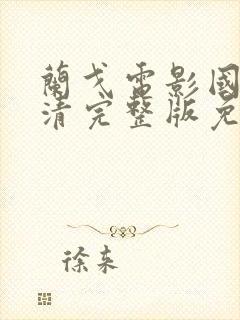 蘭戈電影國
清完整版免
徐来